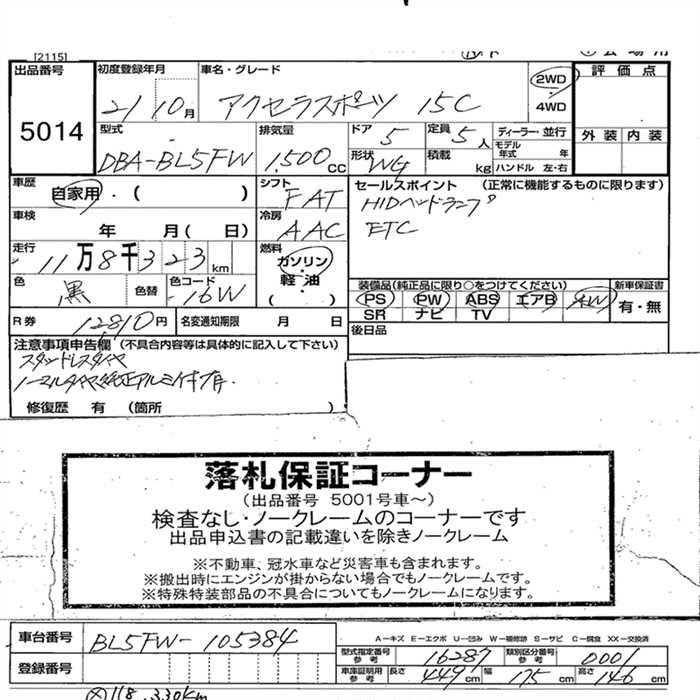 [2115]
出品番号 5014
初度登録年月 21 10月
車名・グレード アクセラスポーツ 15C
2WD
4WD
評価点
外装 内装
型式 DBA-BL5FW
排気量 1,500cc
ドア 5
定員 5人
ディーラー・並行
モデル年式 年
ハンドル 左・右
形状 WG
積載 kg
車歴 自家用・( )
シフト FAT
セールスポイント (正常に機能するものに限ります)
HIDヘッドランプ
ETC
車検 年 月(日)
冷房 AAC
走行 11万8千323km
燃料 ガソリン・軽油・( )
色 黒
色替
色コード 16W
装備品(純正品に限り○をつけてください)
PS PW ABS エアB AW
SR ナビ TV
新車保証書 有・無
R券 12810円
名変通知期限 月 日
後日品
注意事項申告欄 (不具合内容等は具体的に記入して下さい)
スタッドレスタイヤ
ノーマルタイヤ純正アルミ付有.
修復歴 有 (箇所 )
落札保証コーナー
(出品番号 5001号車~)
検査なし・ノークレームのコーナーです
出品申込書の記載違いを除きノークレーム
※不動車、冠水車など災害車も含まれます。
※搬出時にエンジンが掛からない場合でもノークレームです。
※特殊特装部品の不具合についてもノークレームになります。
車台番号 BL5FW-105384
A-キズ E-エクボ U-凹み W-補修跡 S-サビ C-腐食 XX-交換済
型式指定番号参考 16287
類別区分番号参考 0001
登録番号
車庫証明用参考 長さ 449cm 幅 175cm 高さ 146cm